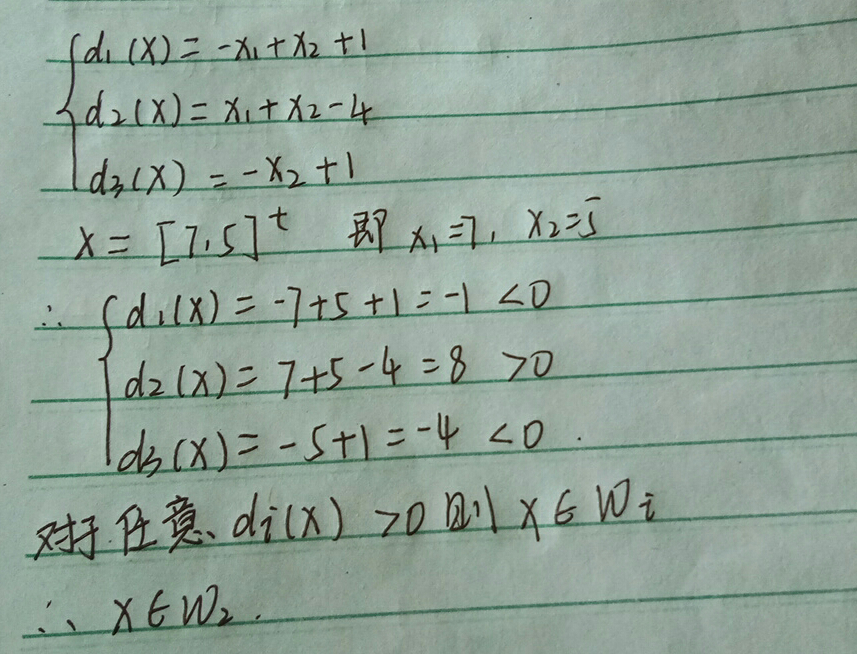 d₁(X) = -x₁ + x₂ + 1
d₂(X) = x₁ + x₂ - 4
d₃(X) = -x₂ + 1
X = [7,5]ᵗ 即 x₁=7, x₂=5
∴ d₁(X) = -7+5+1 = -1 <0
d₂(X) = 7+5-4 = 8 >0
d₃(X) = -5+1 = -4 <0.
对于任意、di(X) >0 则 X∈Wi
∴ X∈W₂.